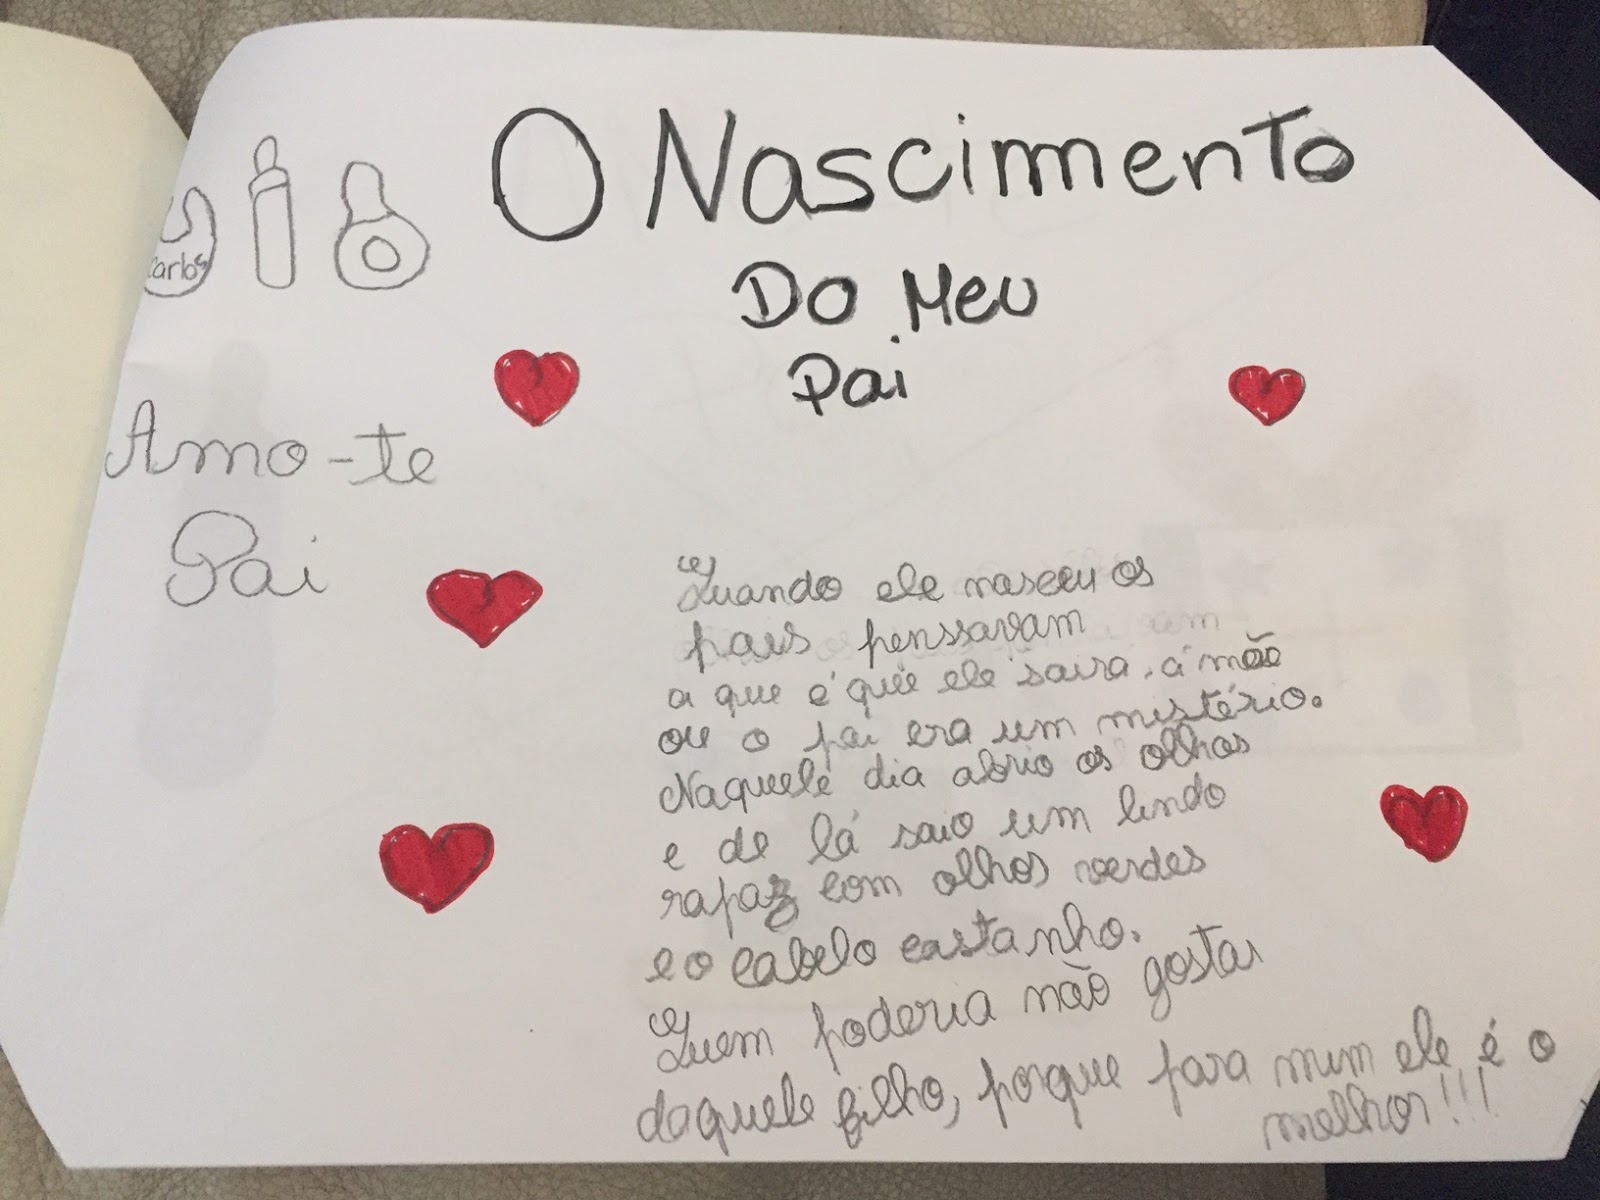 O Nascimento
Do Meu
Pai
Carlos
Amo-te
Pai
Quando ele nasceu os
pais penssavam
a que é que ele saira, á mãe
ou o pai era um mistério.
Naquele dia abrio os olhos
e de lá saio um lindo
rapaz com olhos verdes
e o cabelo castanho.
Quem poderia não gostar
daquele filho, porque para mim ele é o
melhor!!!